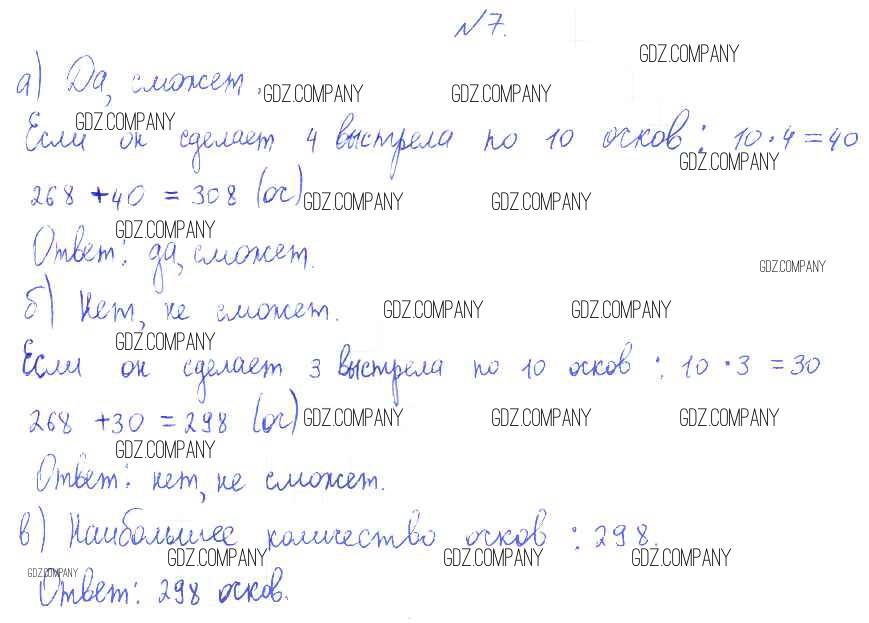 №7.
GDZ.COMPANY
а) Да, сможет.
GDZ.COMPANY GDZ.COMPANY
GDZ.COMPANY
Если он сделает 4 выстрела по 10 очков: 10·4=40
GDZ.COMPANY
268 +40 = 308 (оч)
GDZ.COMPANY GDZ.COMPANY
GDZ.COMPANY
Ответ: да, сможет.
GDZ.COMPANY
б) Нет, не сможет.
GDZ.COMPANY GDZ.COMPANY
GDZ.COMPANY
Если он сделает 3 выстрела по 10 очков: 10·3=30
268 +30 = 298 (оч)
GDZ.COMPANY GDZ.COMPANY GDZ.COMPANY
GDZ.COMPANY
Ответ: нет, не сможет.
в) Наибольшее количество очков: 298.
GDZ.COMPANY GDZ.COMPANY GDZ.COMPANY
GDZ.COMPANY
Ответ: 298 очков.